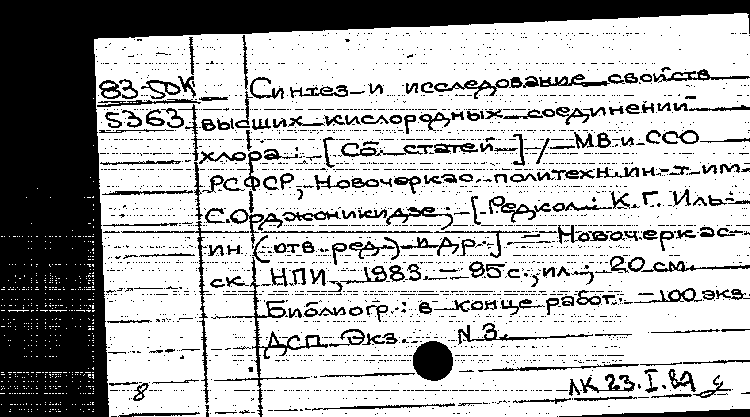 83-50К Синтез и исследование свойств
5363 высших кислородных соединений
хлора : [Сб. статей] / МВ и ССО
РСФСР, Новочеркас. политехн. ин-т им.
С. Орджоникидзе ; [Редкол.: К.Г. Иль-
ин (отв. ред.) и др.] — Новочеркас-
ск НПИ, 1983. — 95 с., ил. ; 20 см.
Библиогр.: в конце работ. — 100 экз.
ДСП. Экз. N 3.
8 ЛК 23.I.84